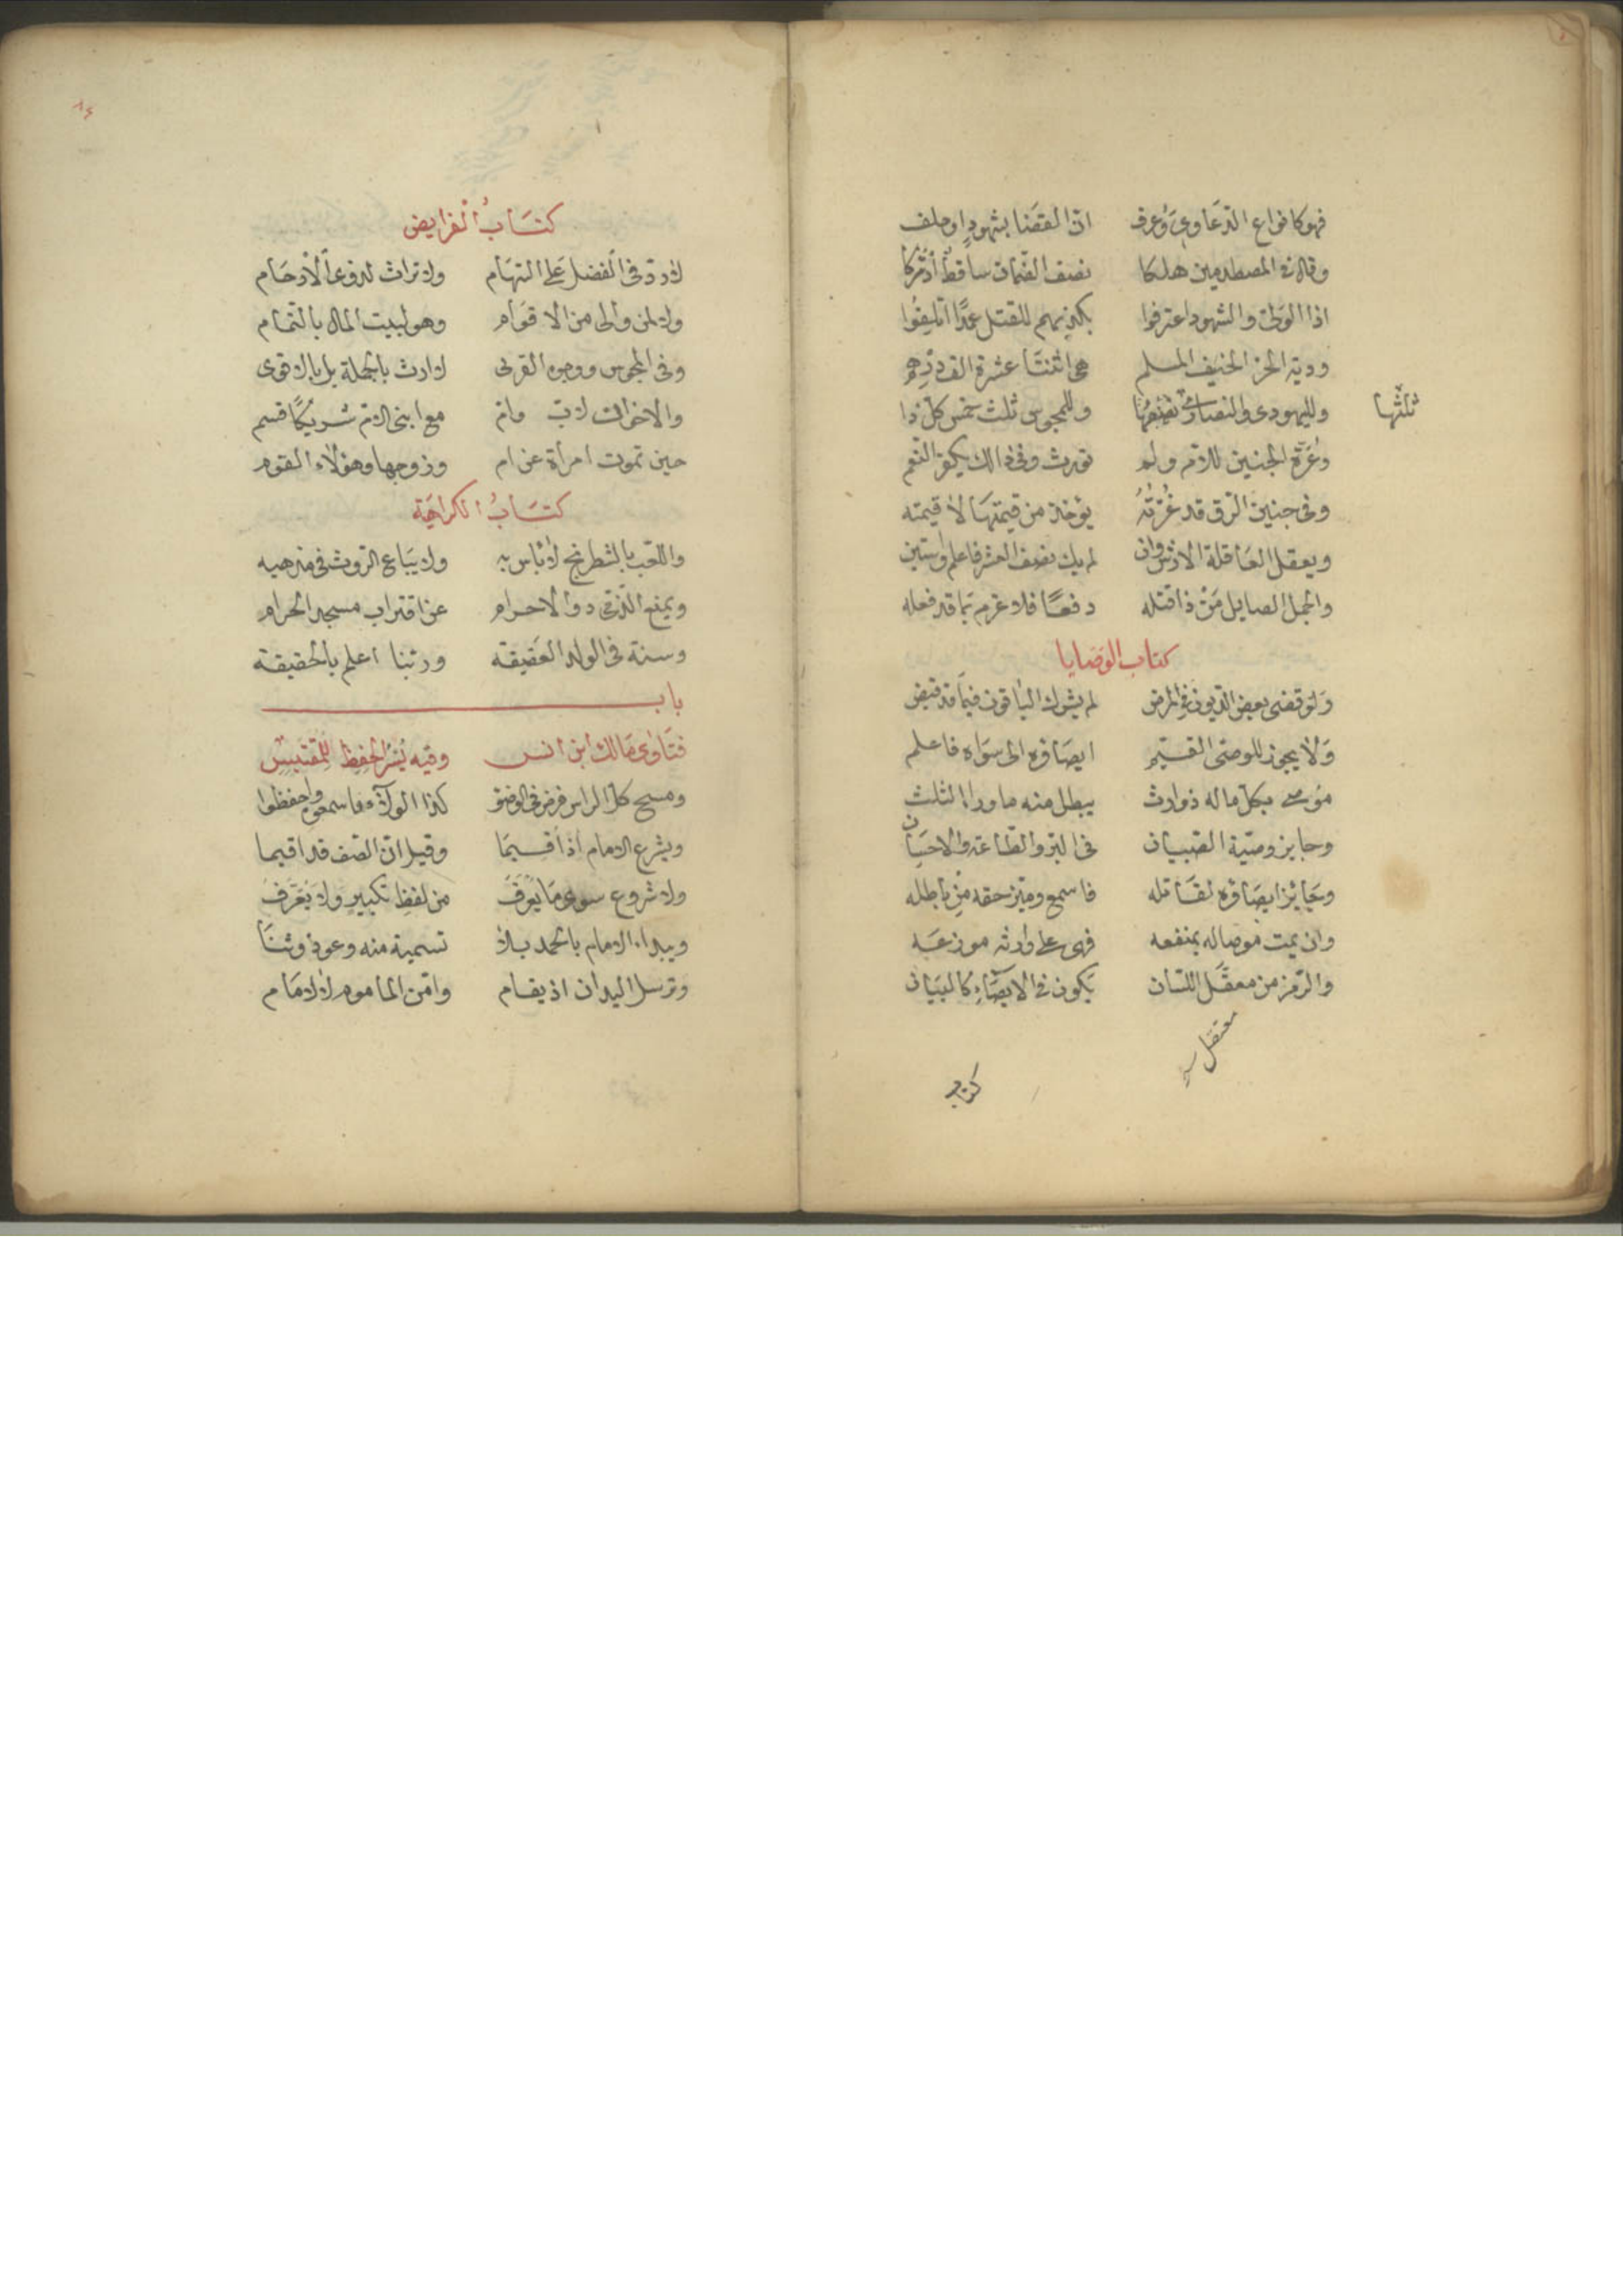 فهو كانواع الدعاوى وعرف ان القضا بشهود او حلف
وقال في المصطدمين هلكا نصف الضمان ساقط ادركا
اذا الولي والشهود اعترفوا بكذبهم للقتل عمدا اتلفوا
ودية الحر الحنيف المسلم هي اثنتا عشرة الف درهم
ولليهودي والنصارى نصفها وللمجوس ثلث خمس كل ذا
ثلثها
وغرة الجنين للام ولم تورث وفي ذالك يكون النعم
وفي جنين الرق قد غرته يؤخذ من قيمتها لا قيمته
ويعقل العاقلة الارش وان لم يك نصف العشر فاعلم واستبن
والجمل الصايل من ذا قتله دفعا فلا غرم بما قد فعله
كتاب الوصايا
ولو قضى بعض الديون في المرض لم يشرك الباقون فيما قد قبض
ولا يجوز للوصى القيم ايصاؤه الى سواه فاعلم
موصى بكل ماله ذو وارث يبطل منه ما ورا الثلث
وجايز وصية الصبيان في البر والطاعة والاحسان
وجائز ايصاؤه لقاتله فاسمع وميز حقه من باطله
وان يمت موصا له بمنفعه فهى على وارثه موزعه
والرمز من معقل اللسان يكون في الايصاء كالبيان
معتقل
كتاب
كتاب الفرايض
لا رد في الفضل على السهام ولا تراث لذوى الارحام
ولا لمن والى من الاقوام وهو لبيت المال بالتمام
وفي المجوس ووجوه القربى لا ارث بالجملة بل بالاقوى
والاخوات لاب وام مع ابنى الام شريكا قسم
حين تموت امرأة عن ام وزوجها وهؤلاء القوم
كتاب الكراهية
واللعب بالشطرنج لا باس به ولا يباع الروث في مذهبه
ويمنع الذمي ذو الاحرام عن اقتراب مسجد الحرام
وسنة في الولد العقيقه وربنا اعلم بالحقيقة
باب
فتاوى مالك ابن انس وفيه يسر الحفظ للمقتبس
ومسح كل الراس فرض في الوضو كذا الولاء فاسمعوه واحفظوا
ويشرع الامام اذ اقيما وقيل ان الصف قد اقيما
ولا شروع سوى ما يعرف من لفظ تكبير ولا يعرف
ويبدا الامام بالحمد بلا تسمية منه وعوذ وثنا
وترسل اليدان اذ يقام وامن الماموم لا الامام